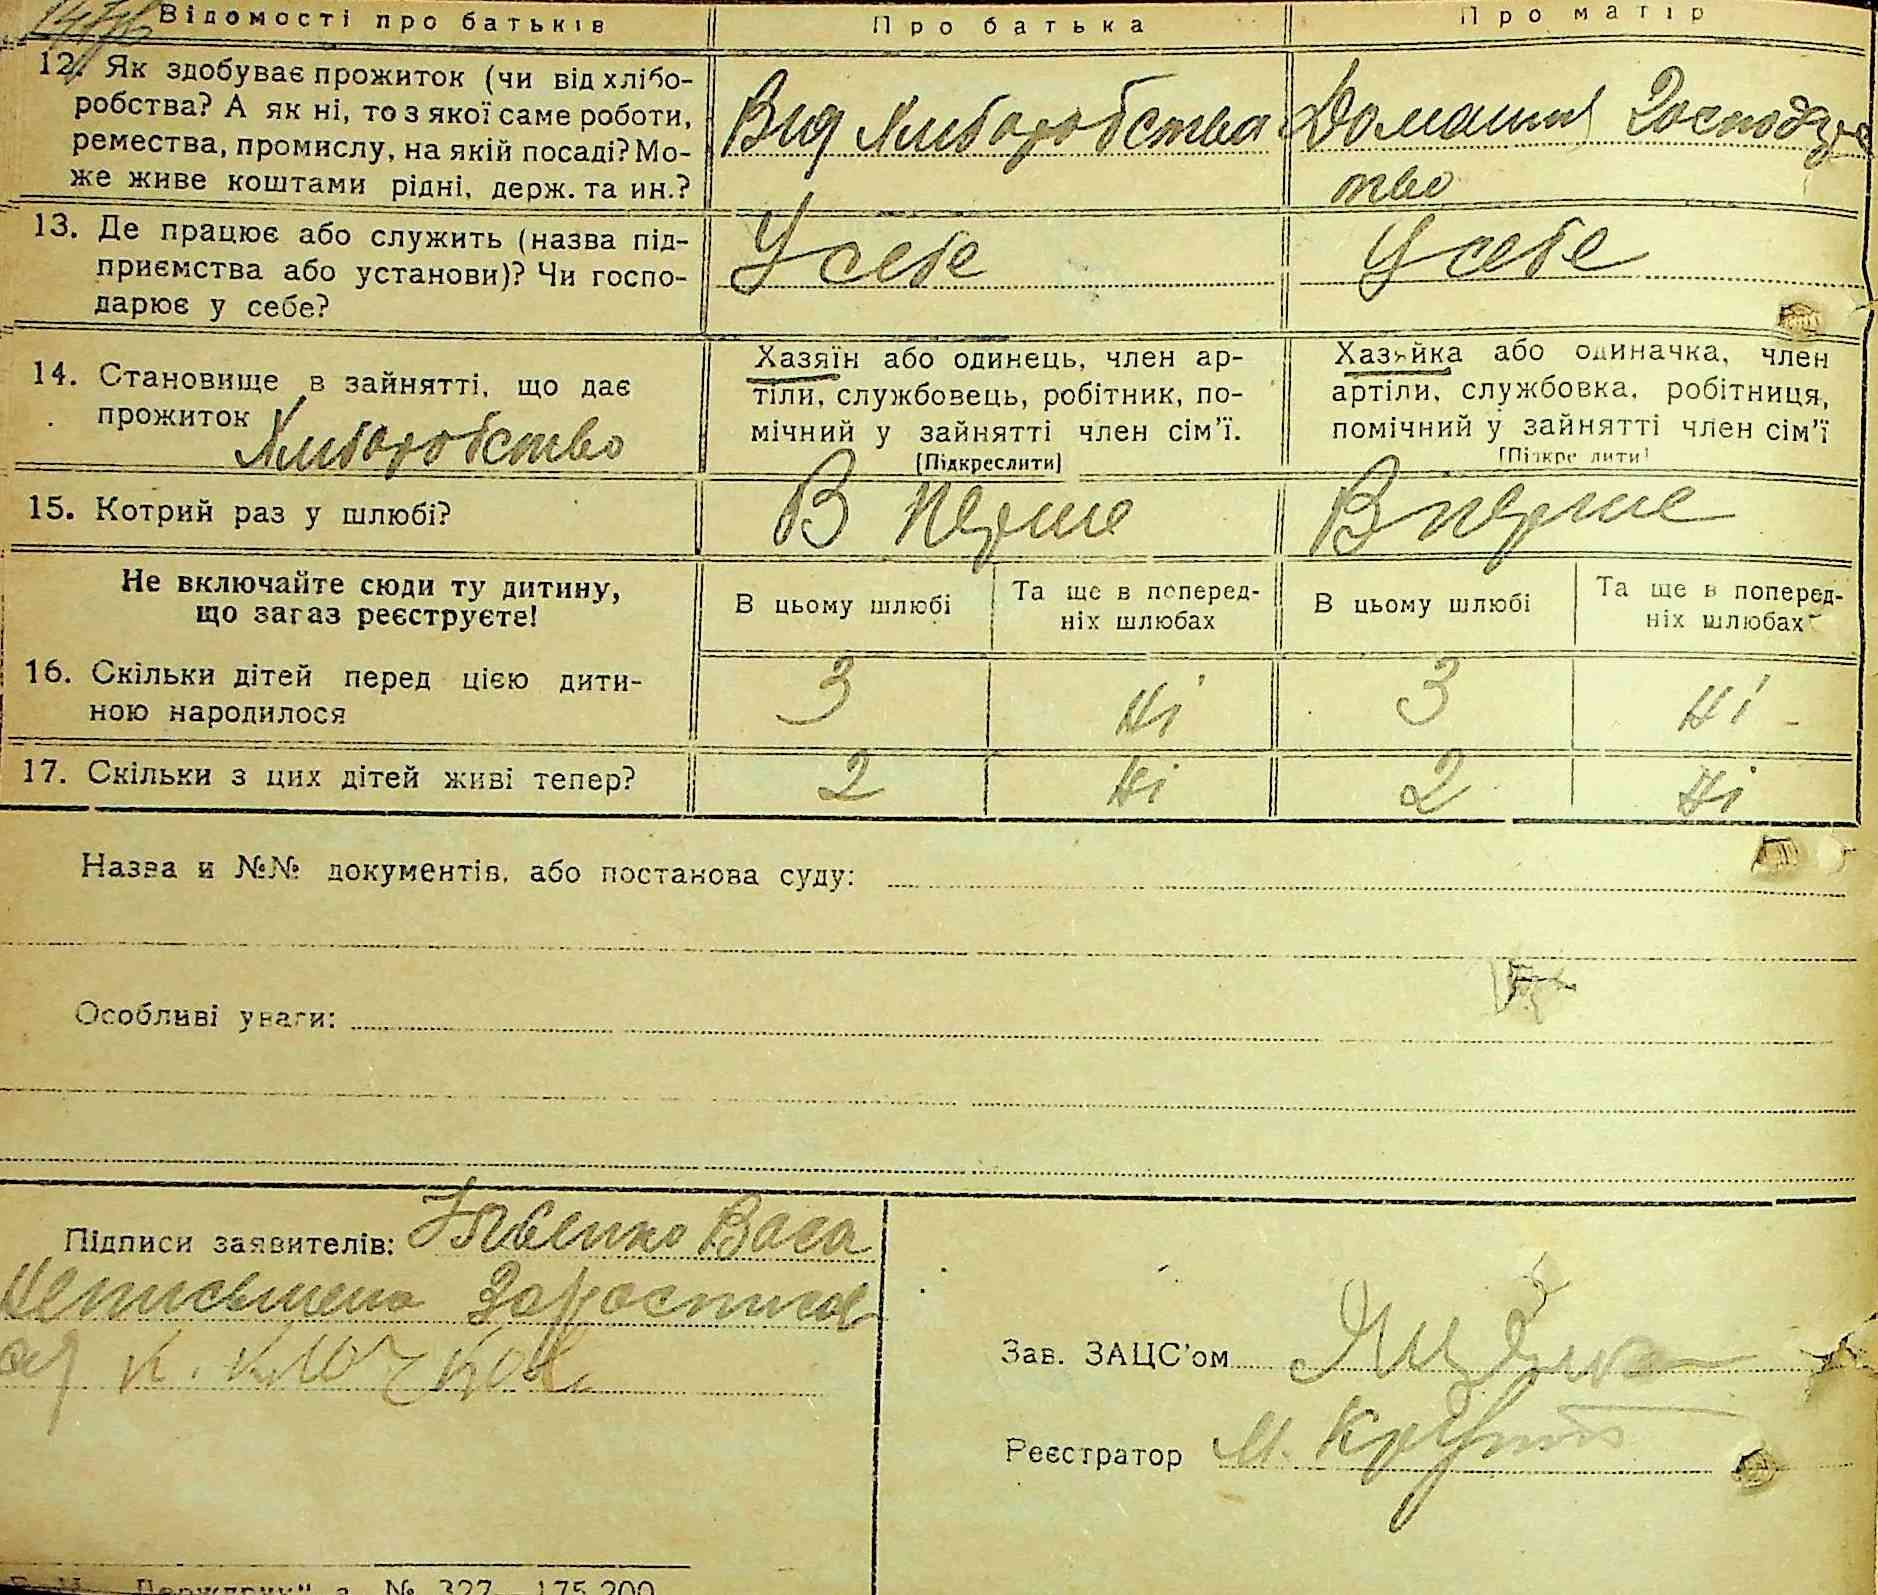 Відомості про батьків Про батька Про матір
12. Як здобуває прожиток (чи від хлібо-
робства? А як ні, то з якої саме роботи,
ремества, промислу, на якій посаді? Мо-
же живе коштами рідні, держ. та ин.?
Вид Хлиборобства
Домашня Господарс
тво
13. Де працює або служить (назва під-
приємства або установи)? Чи госпо-
дарює у себе?
У себе
У себе
14. Становище в зайнятті, що дає
прожиток Хлиборобство
Хазяїн або одинець, член ар-
тіли, службовець, робітник, по-
мічний у зайнятті член сім'ї.
(Підкреслити)
Хазяйка або одиначка, член
артіли, службовка, робітниця,
помічний у зайнятті член сім'ї
(Підкреслити)
15. Котрий раз у шлюбі? В перше В перше
Не включайте сюди ту дитину,
що зараз реєструєте!
В цьому шлюбі
Та ще в поперед-
ніх шлюбах
В цьому шлюбі
Та ще в поперед-
ніх шлюбах
16. Скільки дітей перед цією дити-
ною народилося
3 ні 3 ні
17. Скільки з цих дітей живі тепер? 2 ні 2 ні
Назва и №№ документів, або постанова суду:
Особливі уваги:
Підписи заявителів: Васа
неписьмена
К. Клочков
Зав. ЗАЦС'ом
Реєстратор М.
№ 327—175.200